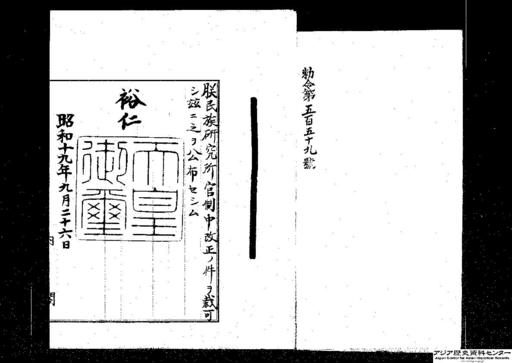 勅令第五百五十九號
朕民族研究所官制中改正ノ件ヲ裁可
シ茲ニ之ヲ公布セシム
裕仁
天皇御璽
昭和十九年九月二十六日
内閣
アジア歴史資料センター
Japan Center for Asian Historical Records